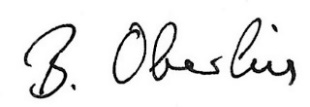 B. Oberlin